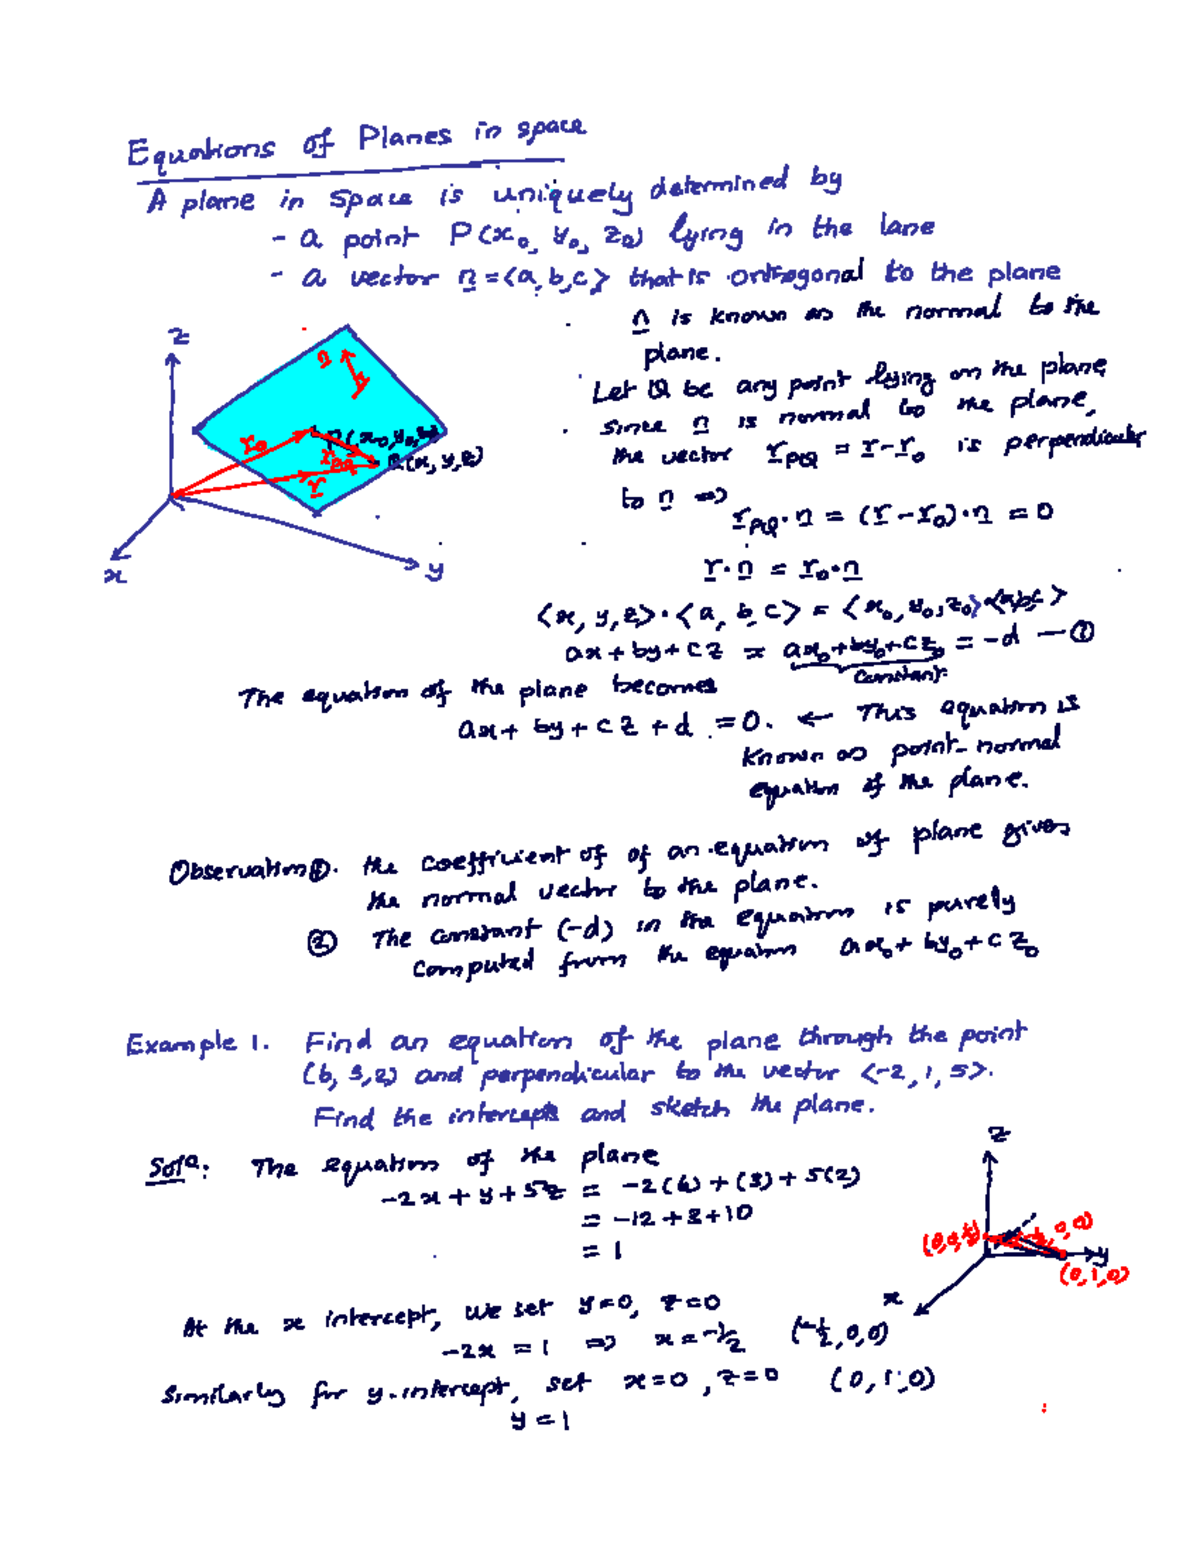 Equations of Planes in space
A plane in space is uniquely determined by
- a point P(x₀, y₀, z₀) lying in the lane
- a vector n = <a, b, c> that is orthogonal to the plane
n is known as the normal to the
plane.
Let Q be any point lying on the plane,
since n is normal to the plane,
the vector r_PQ = r - r₀ is perpendicular
to n ⇒
r_PQ · n = (r - r₀) · n = 0
r · n = r₀ · n
<x, y, z> · <a, b, c> = <x₀, y₀, z₀> · <a, b, c>
ax + by + cz = ax₀ + by₀ + cz₀ = -d — ①
constant
z
n
r₀
P(x₀, y₀, z₀)
r_PQ
Q(x, y, z)
r
x
y
The equation of the plane becomes
ax + by + cz + d = 0. ← This equation is
known as point-normal
equation of the plane.
Observation ①. the coefficient of of an equation of plane gives
the normal vector to the plane.
② The constant (-d) in the equation is purely
computed from the equation ax₀ + by₀ + cz₀
Example 1. Find an equation of the plane through the point
(6, 3, 2) and perpendicular to the vector <-2, 1, 5>.
Find the intercepts and sketch the plane.
Solⁿ: The equation of the plane
-2x + y + 5z = -2(6) + (3) + 5(2)
= -12 + 3 + 10
= 1
z
(-½, 0, 0)
y
(0, 1, 0)
x
At the x intercept, we set y=0, z=0
-2x = 1 ⇒ x = -½ (-½, 0, 0)
Similarly for y-intercept, set x=0, z=0 (0, 1, 0)
y = 1